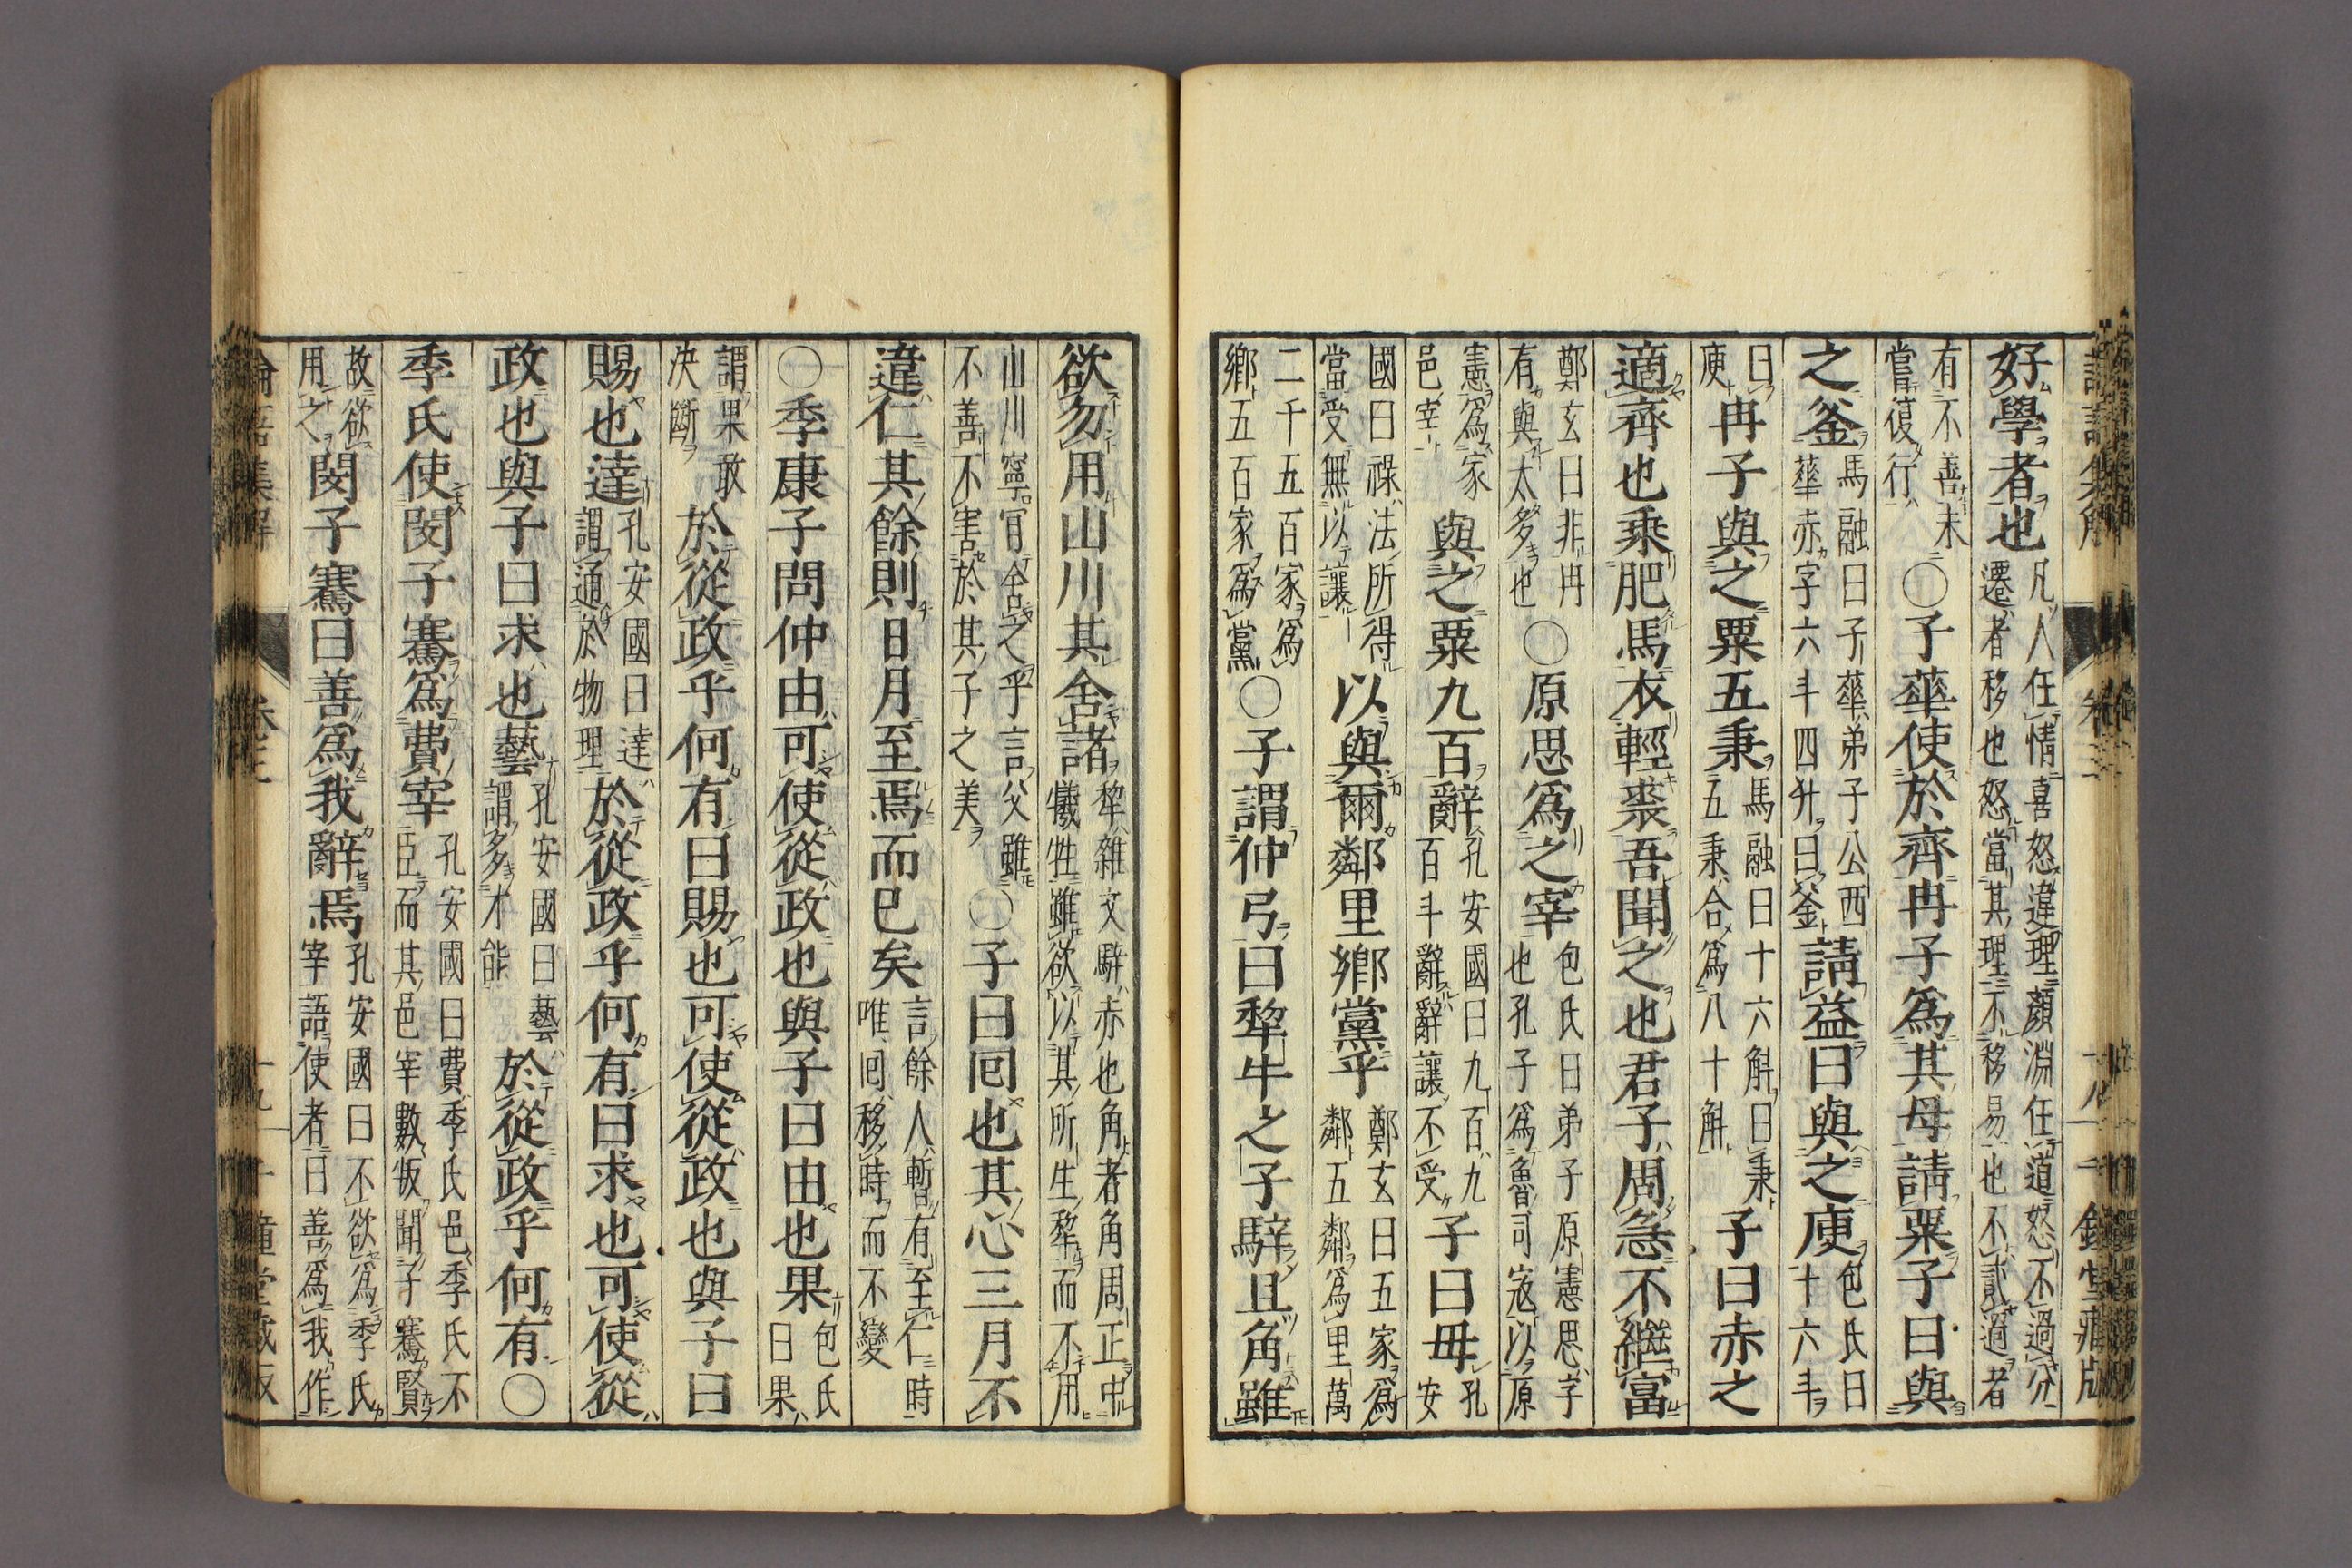 論語集解 卷三 十八 千鍾堂藏版
好學者也凡人任情喜怒違理顏淵任道怒不過分遷者移也怒當其理不移易也不貳過者
有不善未嘗復行〇子華使於齊冉子爲其母請粟子曰與
之釜馬融曰子華弟子公西華赤字六斗四升曰釜請益曰與之庾包氏曰十六斗
曰庾冉子與之粟五秉馬融曰十六斛曰秉五秉合爲八十斛子曰赤之
適齊也乘肥馬衣輕裘吾聞之也君子周急不繼富
鄭玄曰非冉有與太多也〇原思爲之宰包氏曰弟子原憲思字也孔子爲魯司寇以原
憲爲家邑宰與之粟九百辭孔安國曰九百九百斗辭辭讓不受子曰毋孔安
國曰祿法所得當受無以讓以與爾鄰里鄉黨乎鄭玄曰五家爲鄰五鄰爲里萬
二千五百家爲鄉五百家爲黨〇子謂仲弓曰犂牛之子騂且角雖
欲勿用山川其舍諸犂雜文騂赤也角者角周正中犧牲雖欲以其所生犂而不用
山川寧肯舍之乎言父雖不善不害於其子之美〇子曰回也其心三月不
違仁其餘則日月至焉而已矣言餘人暫有至仁時唯回移時而不變
〇季康子問仲由可使從政也與子曰由也果包氏曰果
謂果敢決斷於從政乎何有曰賜也可使從政也與子曰
賜也達孔安國曰達謂通於物理於從政乎何有曰求也可使從
政也與子曰求也藝孔安國曰藝謂多才能於從政乎何有〇
季氏使閔子騫爲費宰孔安國曰費季氏邑季氏不臣而其邑宰數叛聞子騫賢
故欲用之閔子騫曰善爲我辭焉孔安國曰不欲爲季氏宰語使者曰善爲我作
論語集解 卷三 十九 千鍾堂藏版